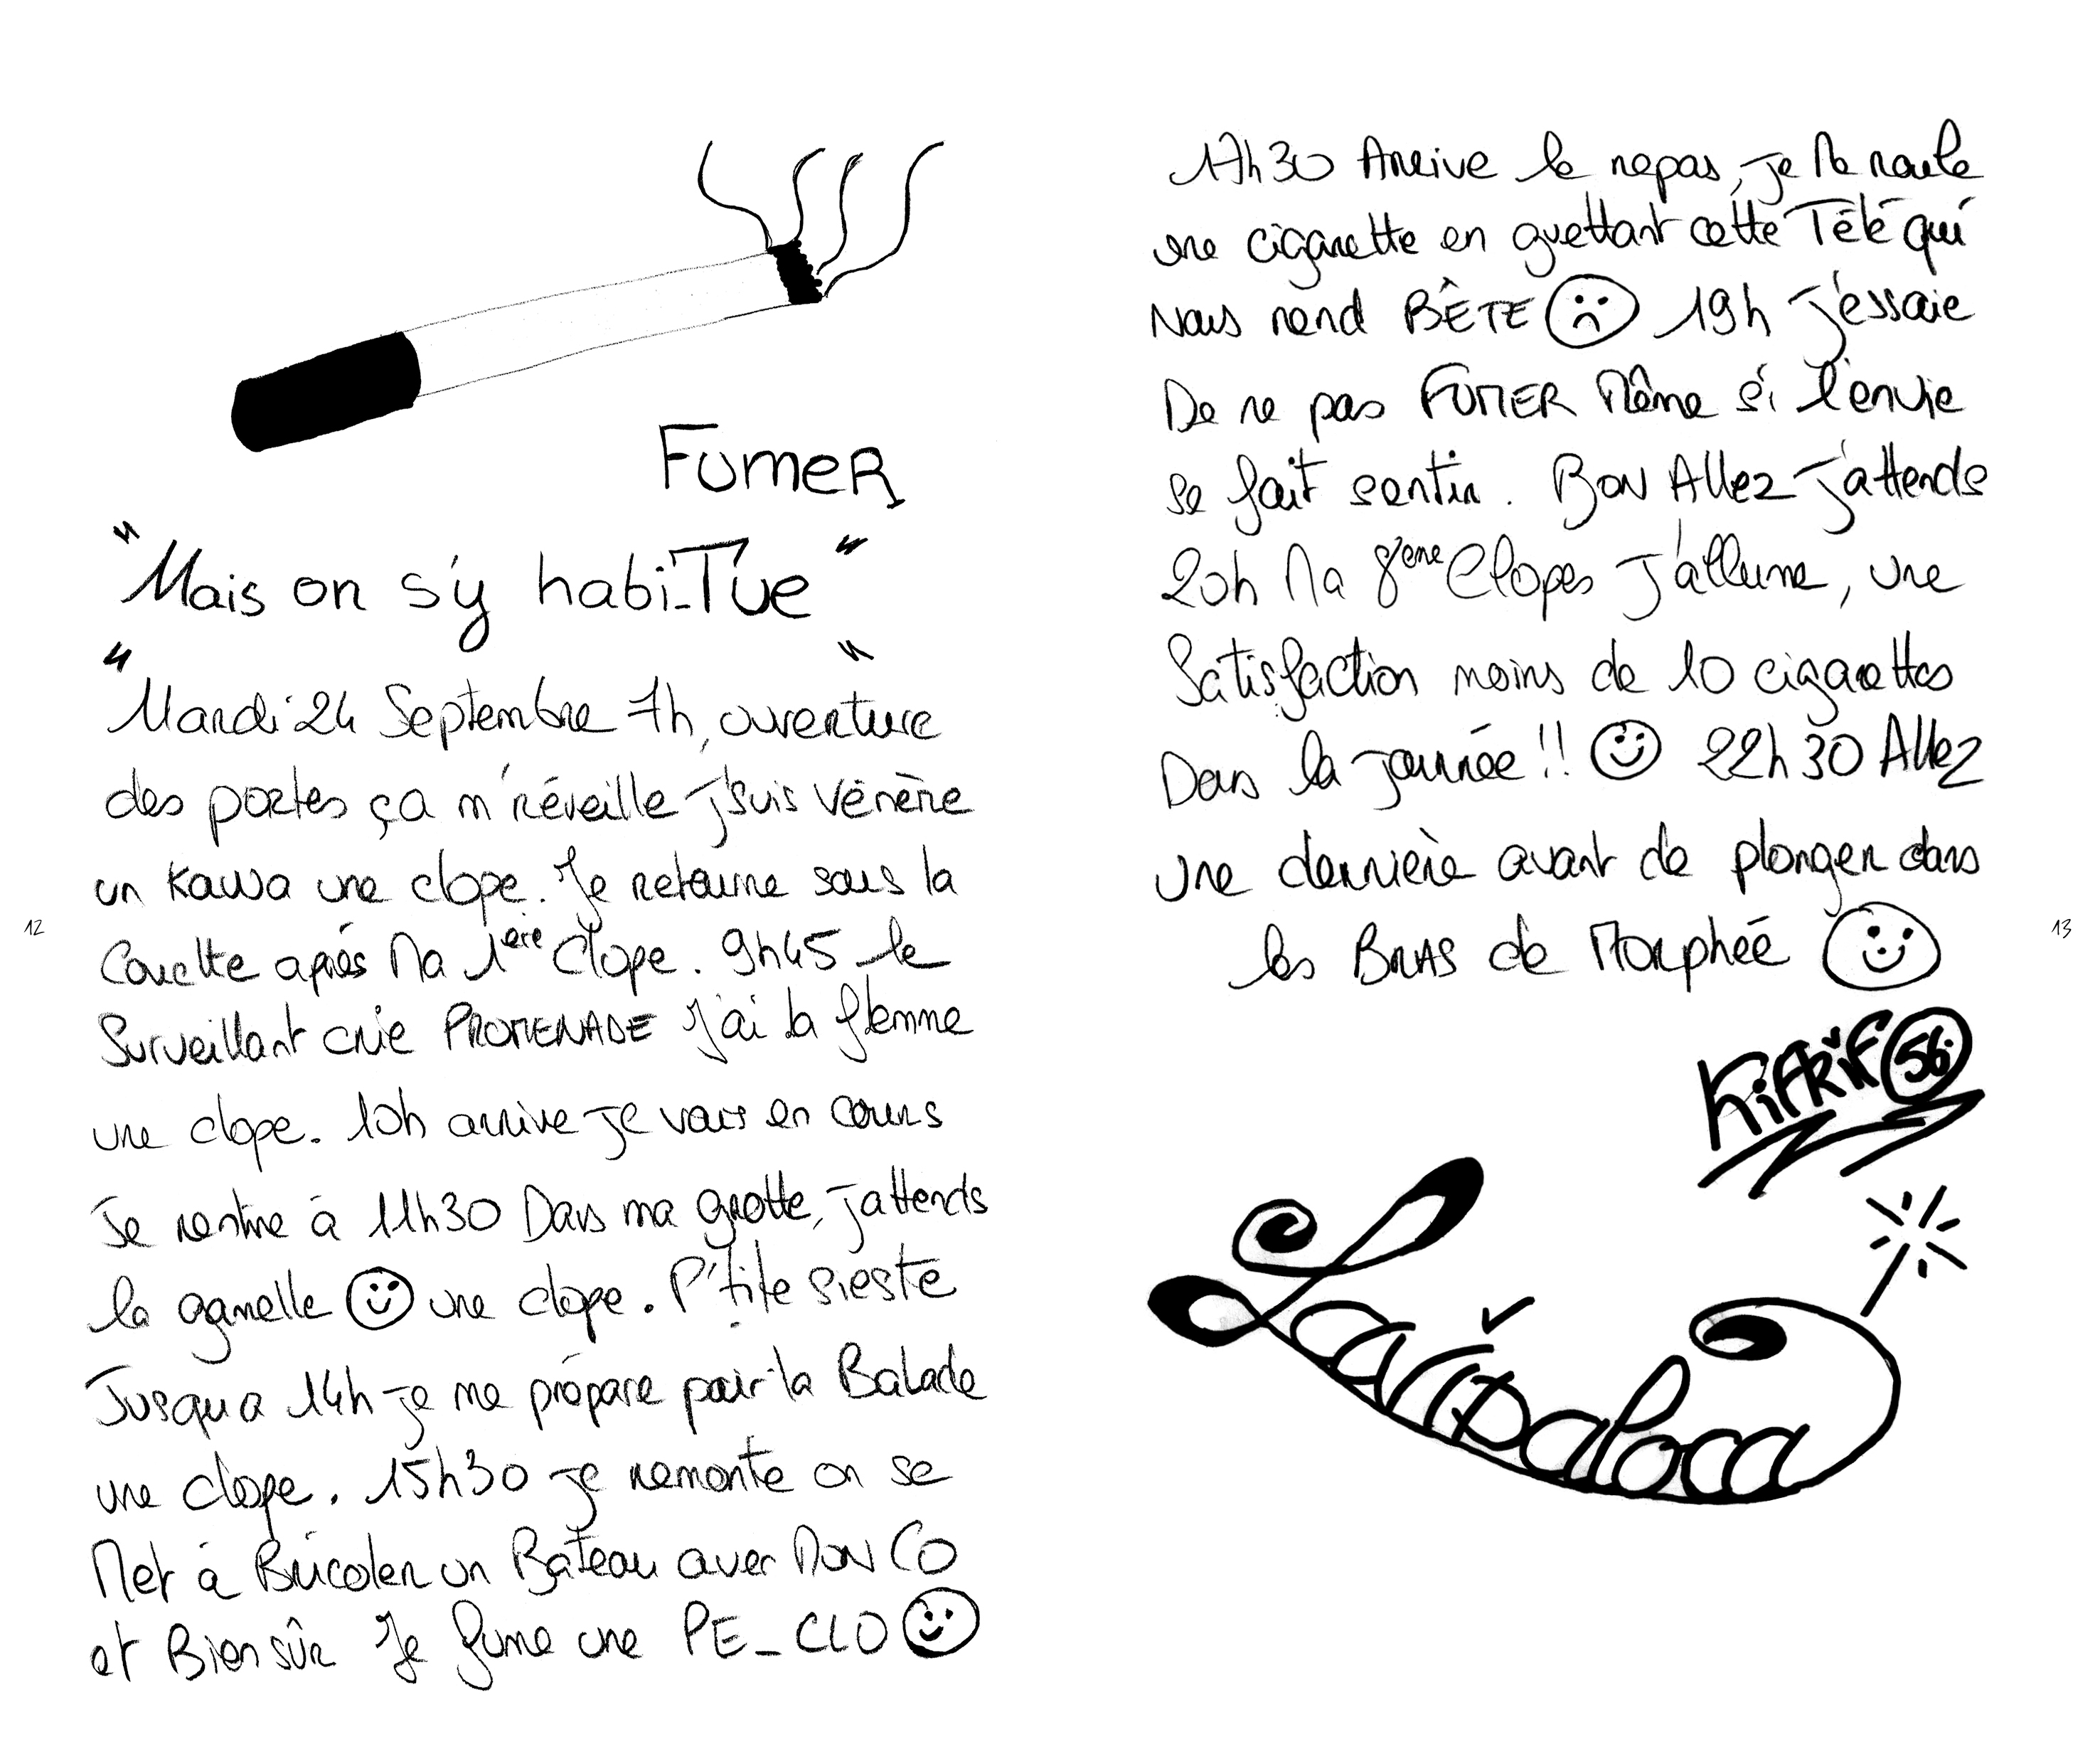 Fumer
"Mais on s'y habi-Tue"
"Mardi 24 Septembre 7h, ouverture
des portes ça m'réveille j'suis vénère
un Kawa une clope. Je retourne sous la
Couette après Ma 1ère Clope. 9h45 le
Surveillant crie PROMENADE J'ai la flemme
une clope. 10h arrive je vais en cours
Je rentre à 11h30 Dans ma grotte, j'attends
la gamelle une clope. P'tite sieste
Jusqu'a 14h je me prépare pour la Balade
une clope. 15h30 je remonte on se
Met à Bricoler un Bateau avec MON CO
et Bien sûr Je fume une PE_CLO
12
17h30 Arrive le repas, je Me roule
une cigarette en guettant cette Télé qui
Nous rend BÊTE 19h J'essaie
De ne pas FUMER Même si l'envie
se fait sentir. BON Allez J'attends
20h Ma 8ème Clopes J'allume, une
Satisfaction moins de 10 cigarettes
Dans la journée!! 22h30 Allez
une dernière avant de plonger dans
les BRAS de Morphée
13
KiFARiF 56
Laripaloca